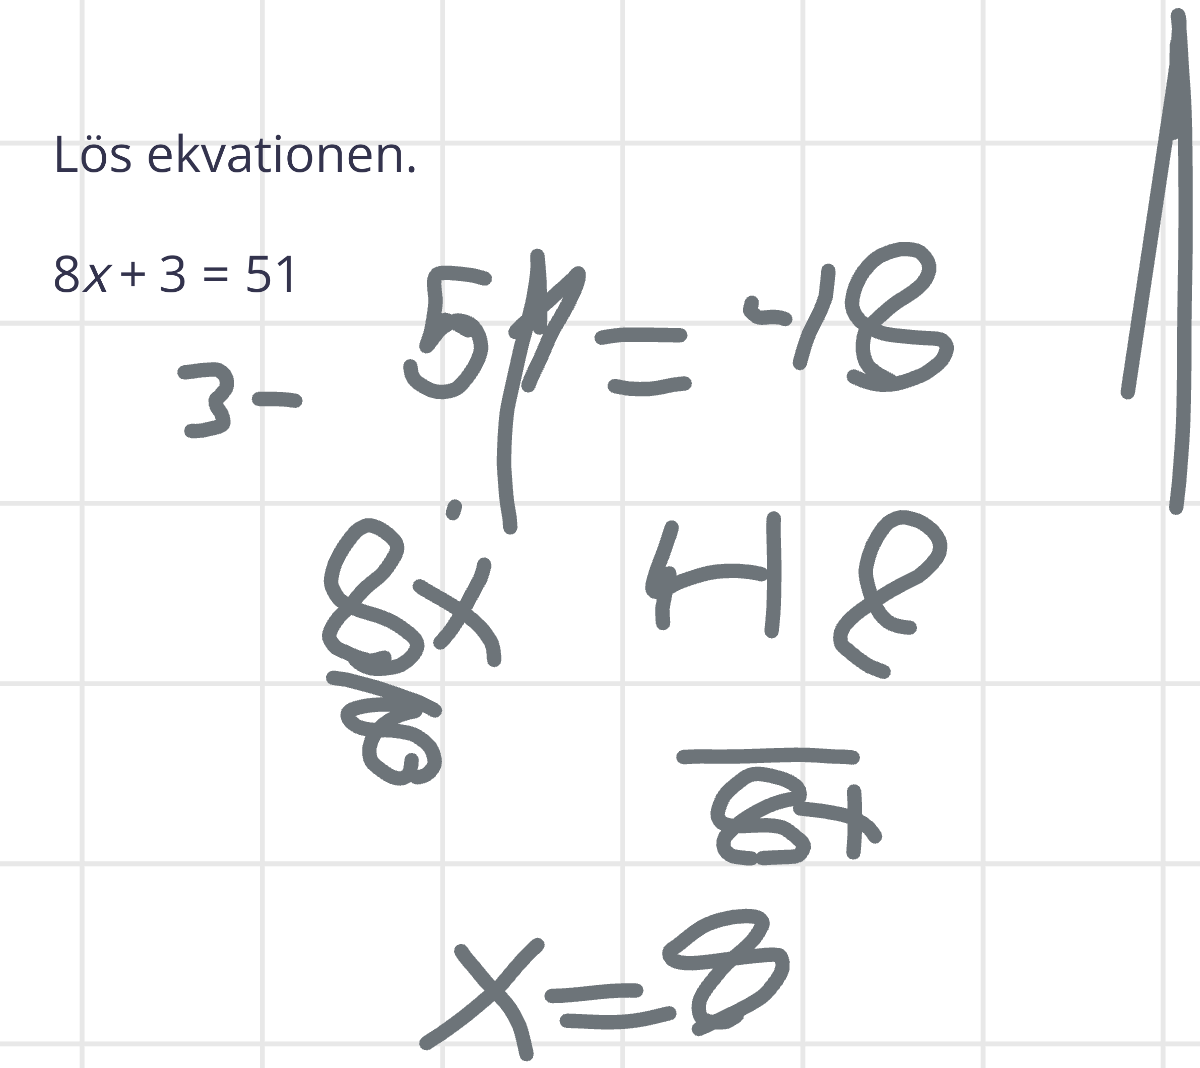 Lös ekvationen.
8x + 3 = 51
3-
51 = -18
8x 48
8 8x
x=8